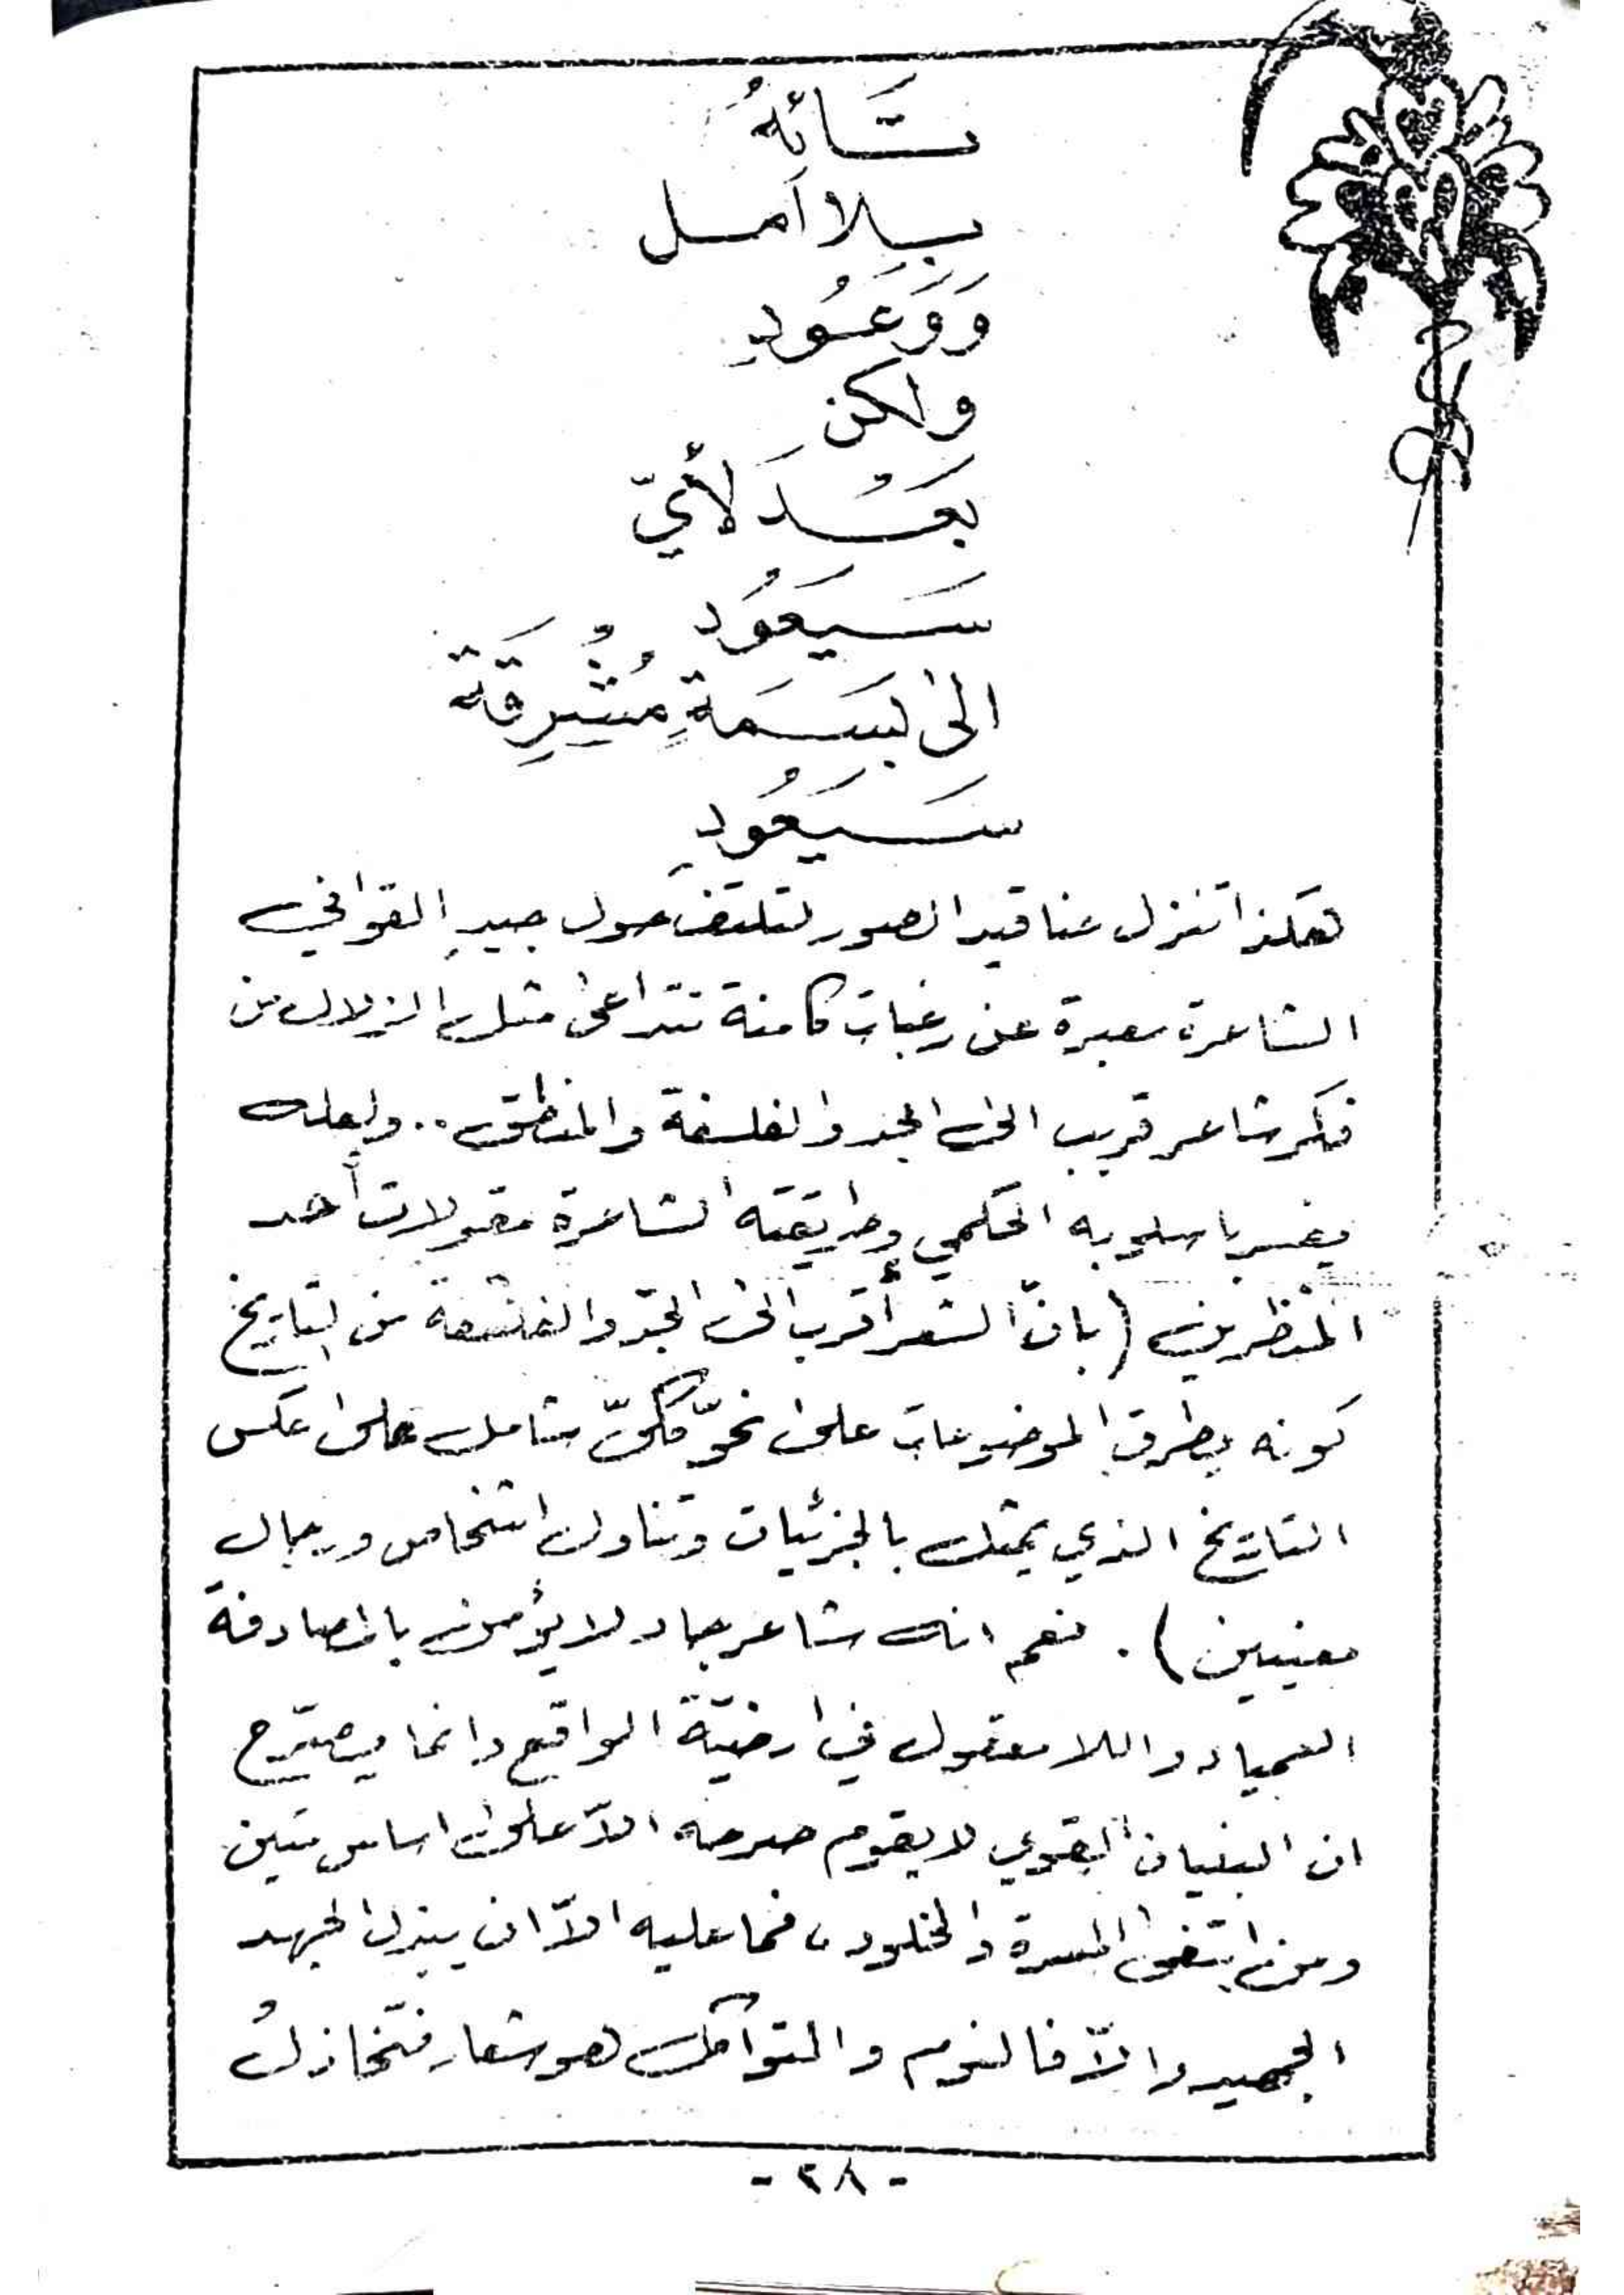 تَائِهُ
بِلا أمل
وَوَعُودِ
ولكن
بَعْدَ لأيّ
سَيَعُود
الى بَسَمَةٍ مُشْرِقَة
سَيَعُودِ
هكذا تنزل عناقيد الصور لتلتف حول جيدِ القوافي
الشاعرة معبرة عن رغبات كامنة تتداعى مثل الزلال من
فكر شاعر قريب الى الجد والفلسفة والمنطق .. ولعله
يفسر باسلوبه الحكمي وطريقته الشاعرة مقولات أحد
المنظرين (بانّ الشعر أقرب الى الجدّ والفلسفة من التاريخ
كونه يطرق الموضوعات على نحوّ كليّ شامل على عكس
التاريخ الذي يمثل بالجزئيات وتناول اشخاص ورجال
معينيين) . نعم انه شاعر جاد لا يؤمن بالمصادفة
العمياء واللا معقول في ارضيّة الواقع وانما يصرّح
ان البنيان القوي لا يقوم صرحه الاّ على اساس متين
ومن ابتغى المسرة والخلود، فما عليه الاّ ان يبذل الجهد
الجهيد والاّ فالنوم والتواكل هو شعار متخاذلُ
- ٣٨ -